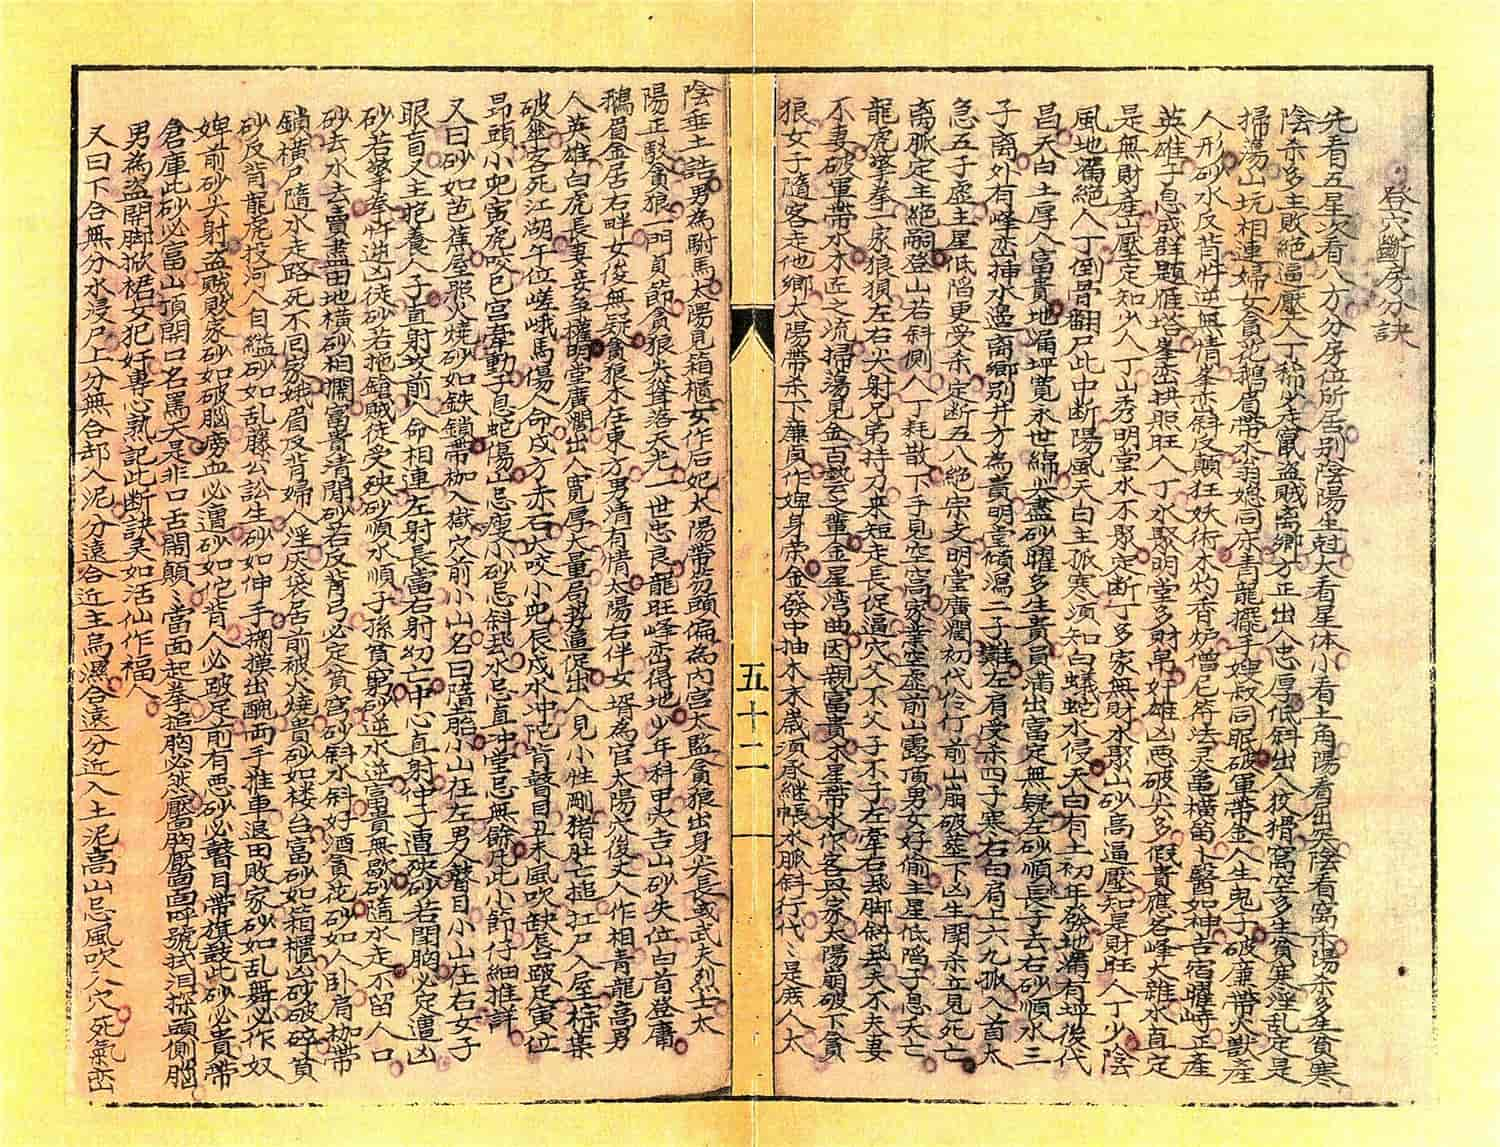 登穴斷房分訣
先看五星次看八方分房位所居別陰陽生尅大看星体小看土角陽看出穴陰看窩杀陽杀多生貧寒
陰杀多主敗絕逼壓人丁稀少走鼠盜賊离鄉方正出入忠厚低斜出入狡猾窩空多生貧寒淫乱定是
掃蕩山坑相連婦女貪花鵝眉帶水翁媳同床青龍擺手嫂叔同眠破軍帶金人生鬼子破廉帶火獸產
人形砂水反背忤逆無情峯峦斜反顛狂妖術木灼香炉僧尼符法灵亀橫笛卜醫如神吉宿耀峙正產
英雄子息成群題雁塔峯峦拱照旺人丁水聚明堂多財帛奸雄凶恶破尖多假貴應名峰大雜水直定
是無財產山壓定知少人丁山秀明堂水不聚定断丁多家無財水聚山砂高逼壓知是財旺人丁少陰
風地漏絕人丁倒骨翻尸此中断陽風天白主孤寒须知白蟻蛇水侵天白有土初年發地漏有坵後代
昌天白土厚人富貴地漏坪寬永世綿尖盡砂曜多生貴員滿出富定無疑左砂順長子去右砂順水三
子离外有峰峦挿水過离鄉別井方為貴明堂傾瀉二子難左肩受杀四子寒右曰肩上六九孤入首太
急五子虛主星低陷更受杀定断五八絕宗文明堂廣濶初代伶仃前山崩破塋下凶生開杀立見死亡
离脈定主絕嗣登山若斜側人丁耗散下手見空窩家業空虛前山露頂男女好偷主星低陷子息夭亡
龍虎擎拳一家狼狽左右尖射兄弟持刀來短走長促逼穴父不父子不子左牽右扯脚斜飛夫不夫妻
不妻破軍帶水木匠之流掃蕩見金百藝之輩金星湾曲因親富貴木星帶水作客興家太陽崩破下貪
狼女子隨客走他鄉太陽帶杀下廉貞作婢身崇金發中抽木末歲须承継帳水脈斜行代〻是庶人太
五十二
陰垂土誥男為駙馬太陽見箱櫃女作后妃太陽帶笏頭偏為內宮太監貪狼出身尖長或武夫烈士太
陽正駁貪狼一門貞節貪狼尖聳落天光一世忠良龍旺峰峦得地少年科甲尖吉山砂失位白首登庸
鵝眉金居右畔女俊無疑貪狼木在東方男清有情太陽右伴女壻為官太陽穴後丈人作相青龍高男
人英雄白虎長妻妾爭權明堂廣濶出人寬厚大量局勢逼促出人見小性剛猪肚亡搥扛尸入屋棕葉
破傘客死江湖午位嵯峨馬傷人命戍方赤石犬咬小兜辰戍水冲陀背瞽目丑未風吹缺唇跛足寅位
昂頭小兜寅虎咬巳宮牽動子息蛇傷山忌瘦小砂忌斜飛水忌直冲堂忌無餘凡此小節仔細推詳
又曰砂如芭蕉屋照火燒砂如鉄鎖帶枷入獄穴前小山名曰墮胎小山在左男人瞽目小山在右女子
眼盲又主抱養人子直射攻前人命相連左射長富右射幼亡中心直射仲子遭殃砂若開胸必定遭凶
砂若擎拳忤逆凶徒砂若拖鎗賊徒受殃砂順水順子孫貧窮砂逆水逆富貴無歇砂隨水走不留人口
砂去水去賣盡田地橫砂相攔富貴清閒砂若反背弓必定貧窮砂斜水斜好酒貪花砂如人卧肩枷帶
鎖橫尸隨水走路死不囘家娥眉反背婦人淫厌袋居前被火燒貴砂如楼台富砂如箱櫃凶砂破碎貧
砂反背龍虎投河人自縊砂如乱藤公訟生砂如伸手摑摸出醜両手推車退田敗家砂如乱舞必作奴
婢前砂尖射盗賊敗家砂如破腦癆血必遭砂如佗背人必跛足前有恶砂必瞽目帶旗鼓此砂必貴帶
倉庫此砂必富山頂開口名罵天是非口舌鬧顛〻當面起拳搥胸必然壓胸壓面呼號拭泪探頭側腦
男為盜開脚掀裙女犯奸專心熟記此断訣矣如活仙作福人
又曰下合無分水浸尸上分無合却入泥分遠合近主烏濕合遠分近入土泥高山忌風吹入穴死氣峦